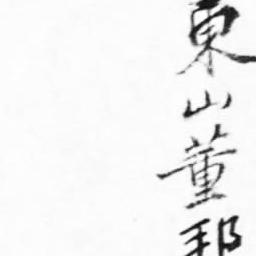 東山董邦